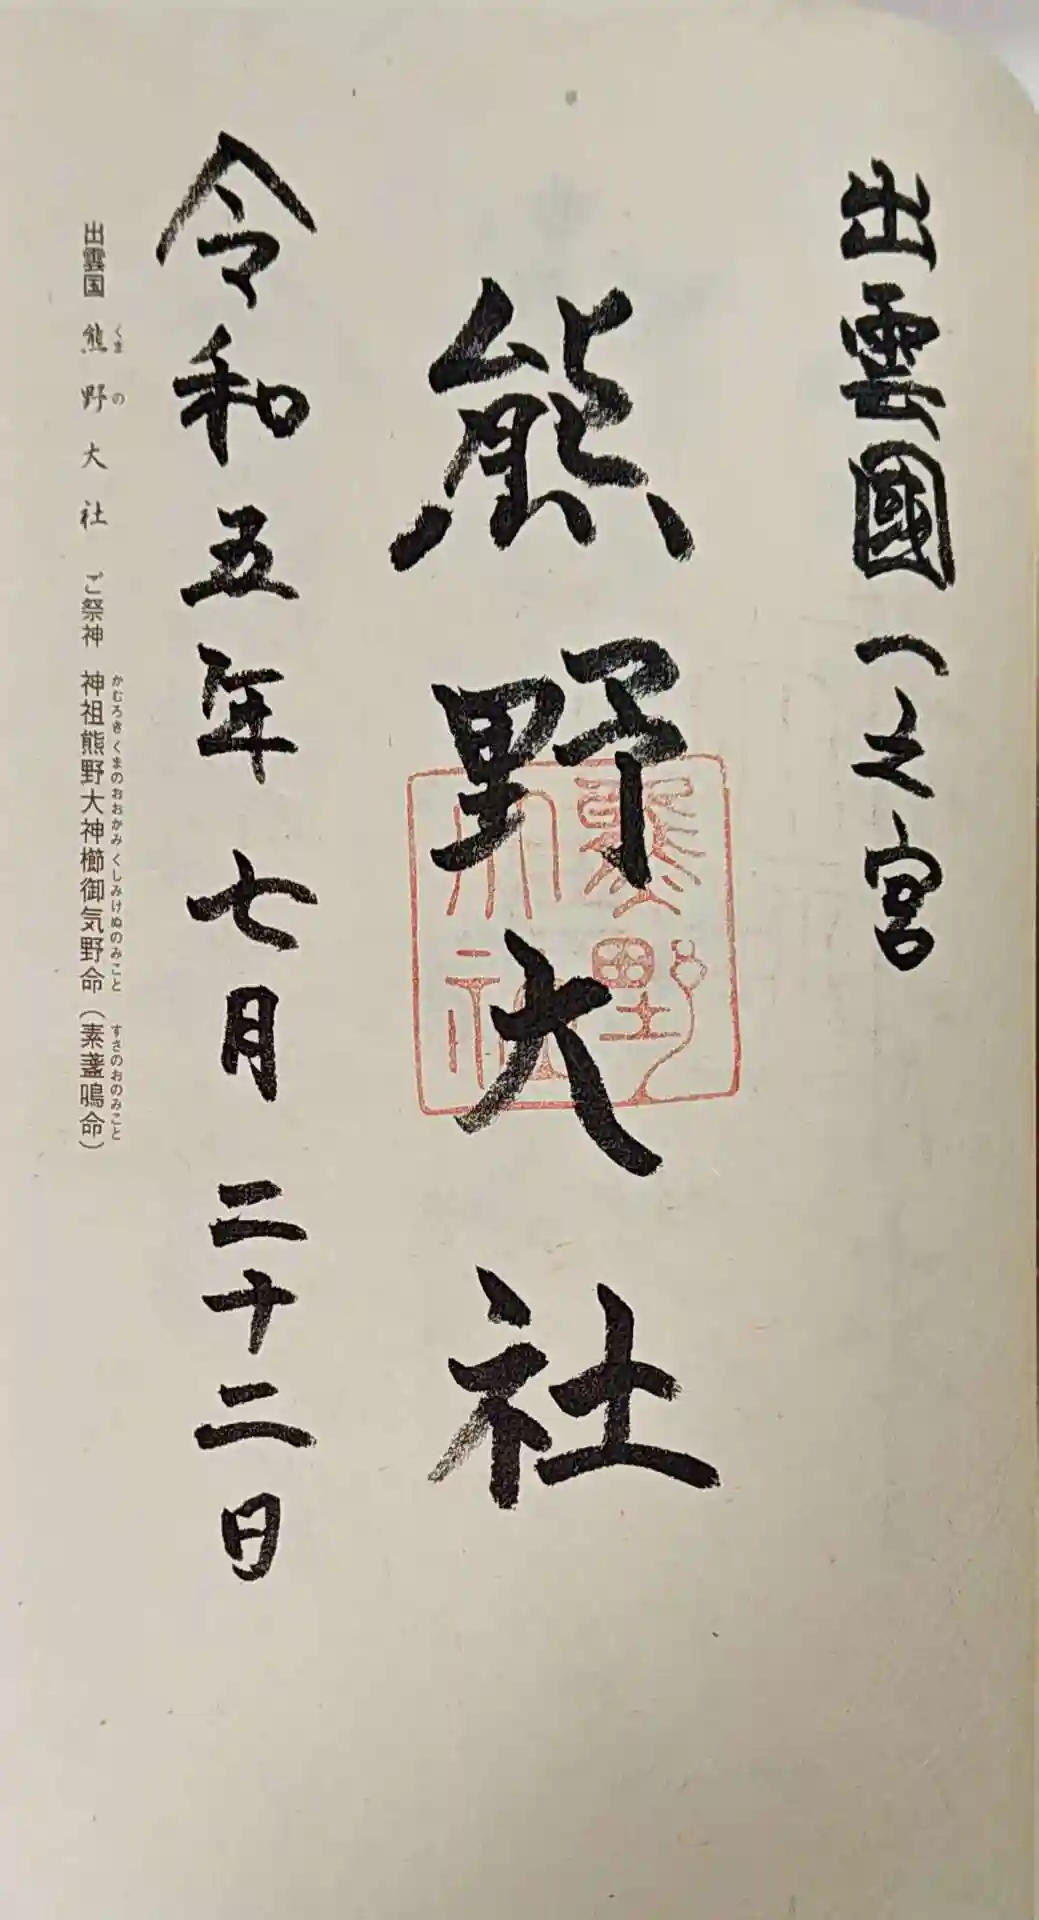 出雲國一之宮
熊野大社
熊野大社
令和五年七月二十二日
出雲国 熊野大社 ご祭神 神祖熊野大神櫛御気野命（素盞鳴命）
くまの かむろき くまのおおかみ くしみけぬのみこと すさのおのみこと